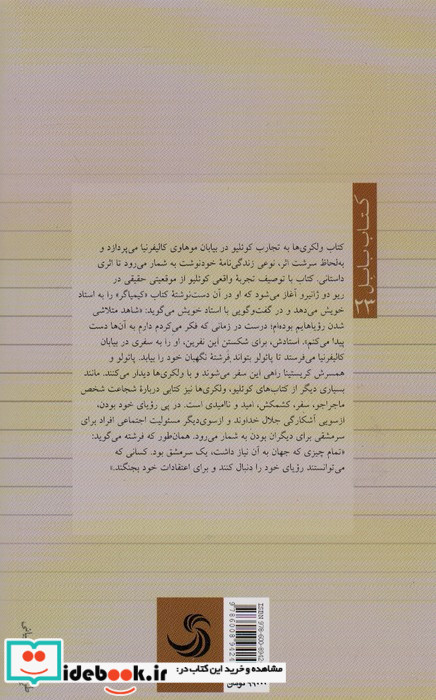 کتاب بابل
کتاب ولکری‌ها به تجارب کوئلیو در بیابان موهاوی کالیفرنیا می‌پردازد و
به‌لحاظ سرشت اثر، نوعی زندگی‌نامهٔ خودنوشت به شمار می‌رود تا اثری
داستانی. کتاب با توصیف تجربهٔ واقعی کوئلیو از موقعیتی حقیقی در
ریو دو ژانیرو آغاز می‌شود که او در آن دست‌نوشتهٔ کتاب «کیمیاگر» را به استاد
خویش می‌دهد و در گفت‌وگویی با استاد خویش می‌گوید: «شاهد متلاشی
شدن رؤیاهایم بوده‌ام؛ درست در زمانی که فکر می‌کردم دارم به آن‌ها دست
پیدا می‌کنم». استادش، برای شکستن این نفرین، او را به سفری در بیابان
کالیفرنیا می‌فرستد تا پائولو بتواند فرشتهٔ نگهبان خود را بیابد. پائولو و
همسرش کریستینا راهی این سفر می‌شوند و با ولکری‌ها دیدار می‌کنند. مانند
بسیاری دیگر از کتاب‌های کوئلیو، ولکری‌ها نیز کتابی دربارهٔ شجاعت شخص
ماجراجو، سفر، کشمکش، امید و ناامیدی است. در پی رؤیای خود بودن،
ازسویی آشکارگی جلال خداوند و ازسوی‌دیگر مسئولیت اجتماعی افراد برای
سرمشقی برای دیگران بودن به شمار می‌رود. همان‌طور که فرشته می‌گوید:
«تمام چیزی که جهان به آن نیاز داشت، یک سرمشق بود. کسانی که
می‌توانستند رؤیای خود را دنبال کنند و برای اعتقادات خود بجنگند.»
مشاهده و خرید این کتاب در:
idebook.ir
تومان